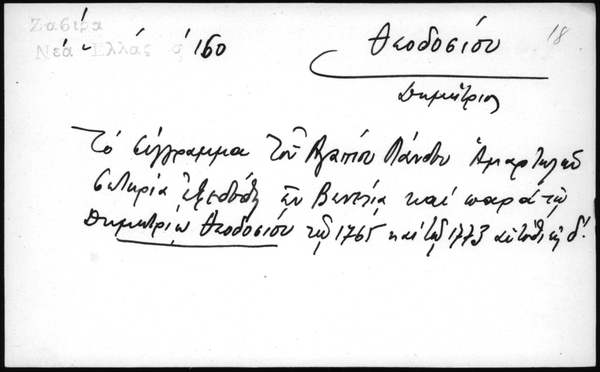 Ζαβίρα
Νέα Ἑλλάς 160
Θεοδοσίου 18
Δημήτριος
Τό σύγγραμμα τοῦ Ἀγαπίου Λάνδου Ἁμαρτωλῶν
Σωτηρία ἐξεδόθη ἐν Βενετία καί παρά τῷ
Δημητρίῳ Θεοδοσίου τῷ 1765 καί τῷ 1773 εἰς δ'.